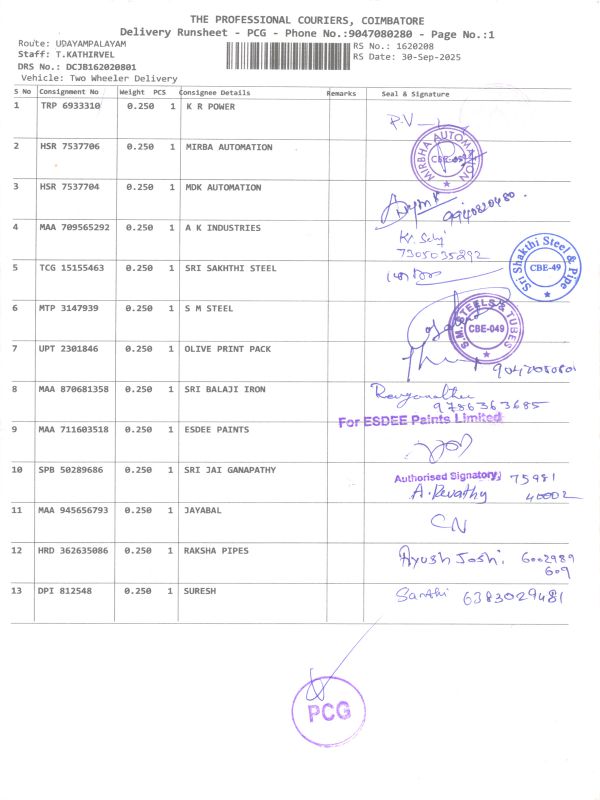 THE PROFESSIONAL COURIERS, COIMBATORE
Delivery Runsheet - PCG - Phone No.:9047080280 - Page No.:1
Route: UDAYAMPALAYAM
RS No.: 1620208
Staff: T.KATHIRVEL
RS Date: 30-Sep-2025
DRS No.: DCJB162020801
Vehicle: Two Wheeler Delivery
S No Consignment No Weight PCS Consignee Details Remarks Seal & Signature
1 TRP 6933310 0.250 1 K R POWER
R.V
2 HSR 7537706 0.250 1 MIRBA AUTOMATION
MIRBHA AUTOMATION
3 HSR 7537704 0.250 1 MDK AUTOMATION
9940820480.
4 MAA 709565292 0.250 1 A K INDUSTRIES
7305035292
5 TCG 15155463 0.250 1 SRI SAKHTHI STEEL
Sri Shakthi Steel & Pipe
CBE-49
6 MTP 3147939 0.250 1 S M STEEL
S.M. STEELS & TUBES
CBE-049
7 UPT 2301846 0.250 1 OLIVE PRINT PACK
8 MAA 870681358 0.250 1 SRI BALAJI IRON
9786363685
For ESDEE Paints Limited
9 MAA 711603518 0.250 1 ESDEE PAINTS
Authorised Signatory
10 SPB 50289686 0.250 1 SRI JAI GANAPATHY
75981
A. Revathy 40002
11 MAA 945656793 0.250 1 JAYABAL
CN
12 HRD 362635086 0.250 1 RAKSHA PIPES
Ayush Joshi. 6002989
609
13 DPI 812548 0.250 1 SURESH
Santhi 6383029481
PCG